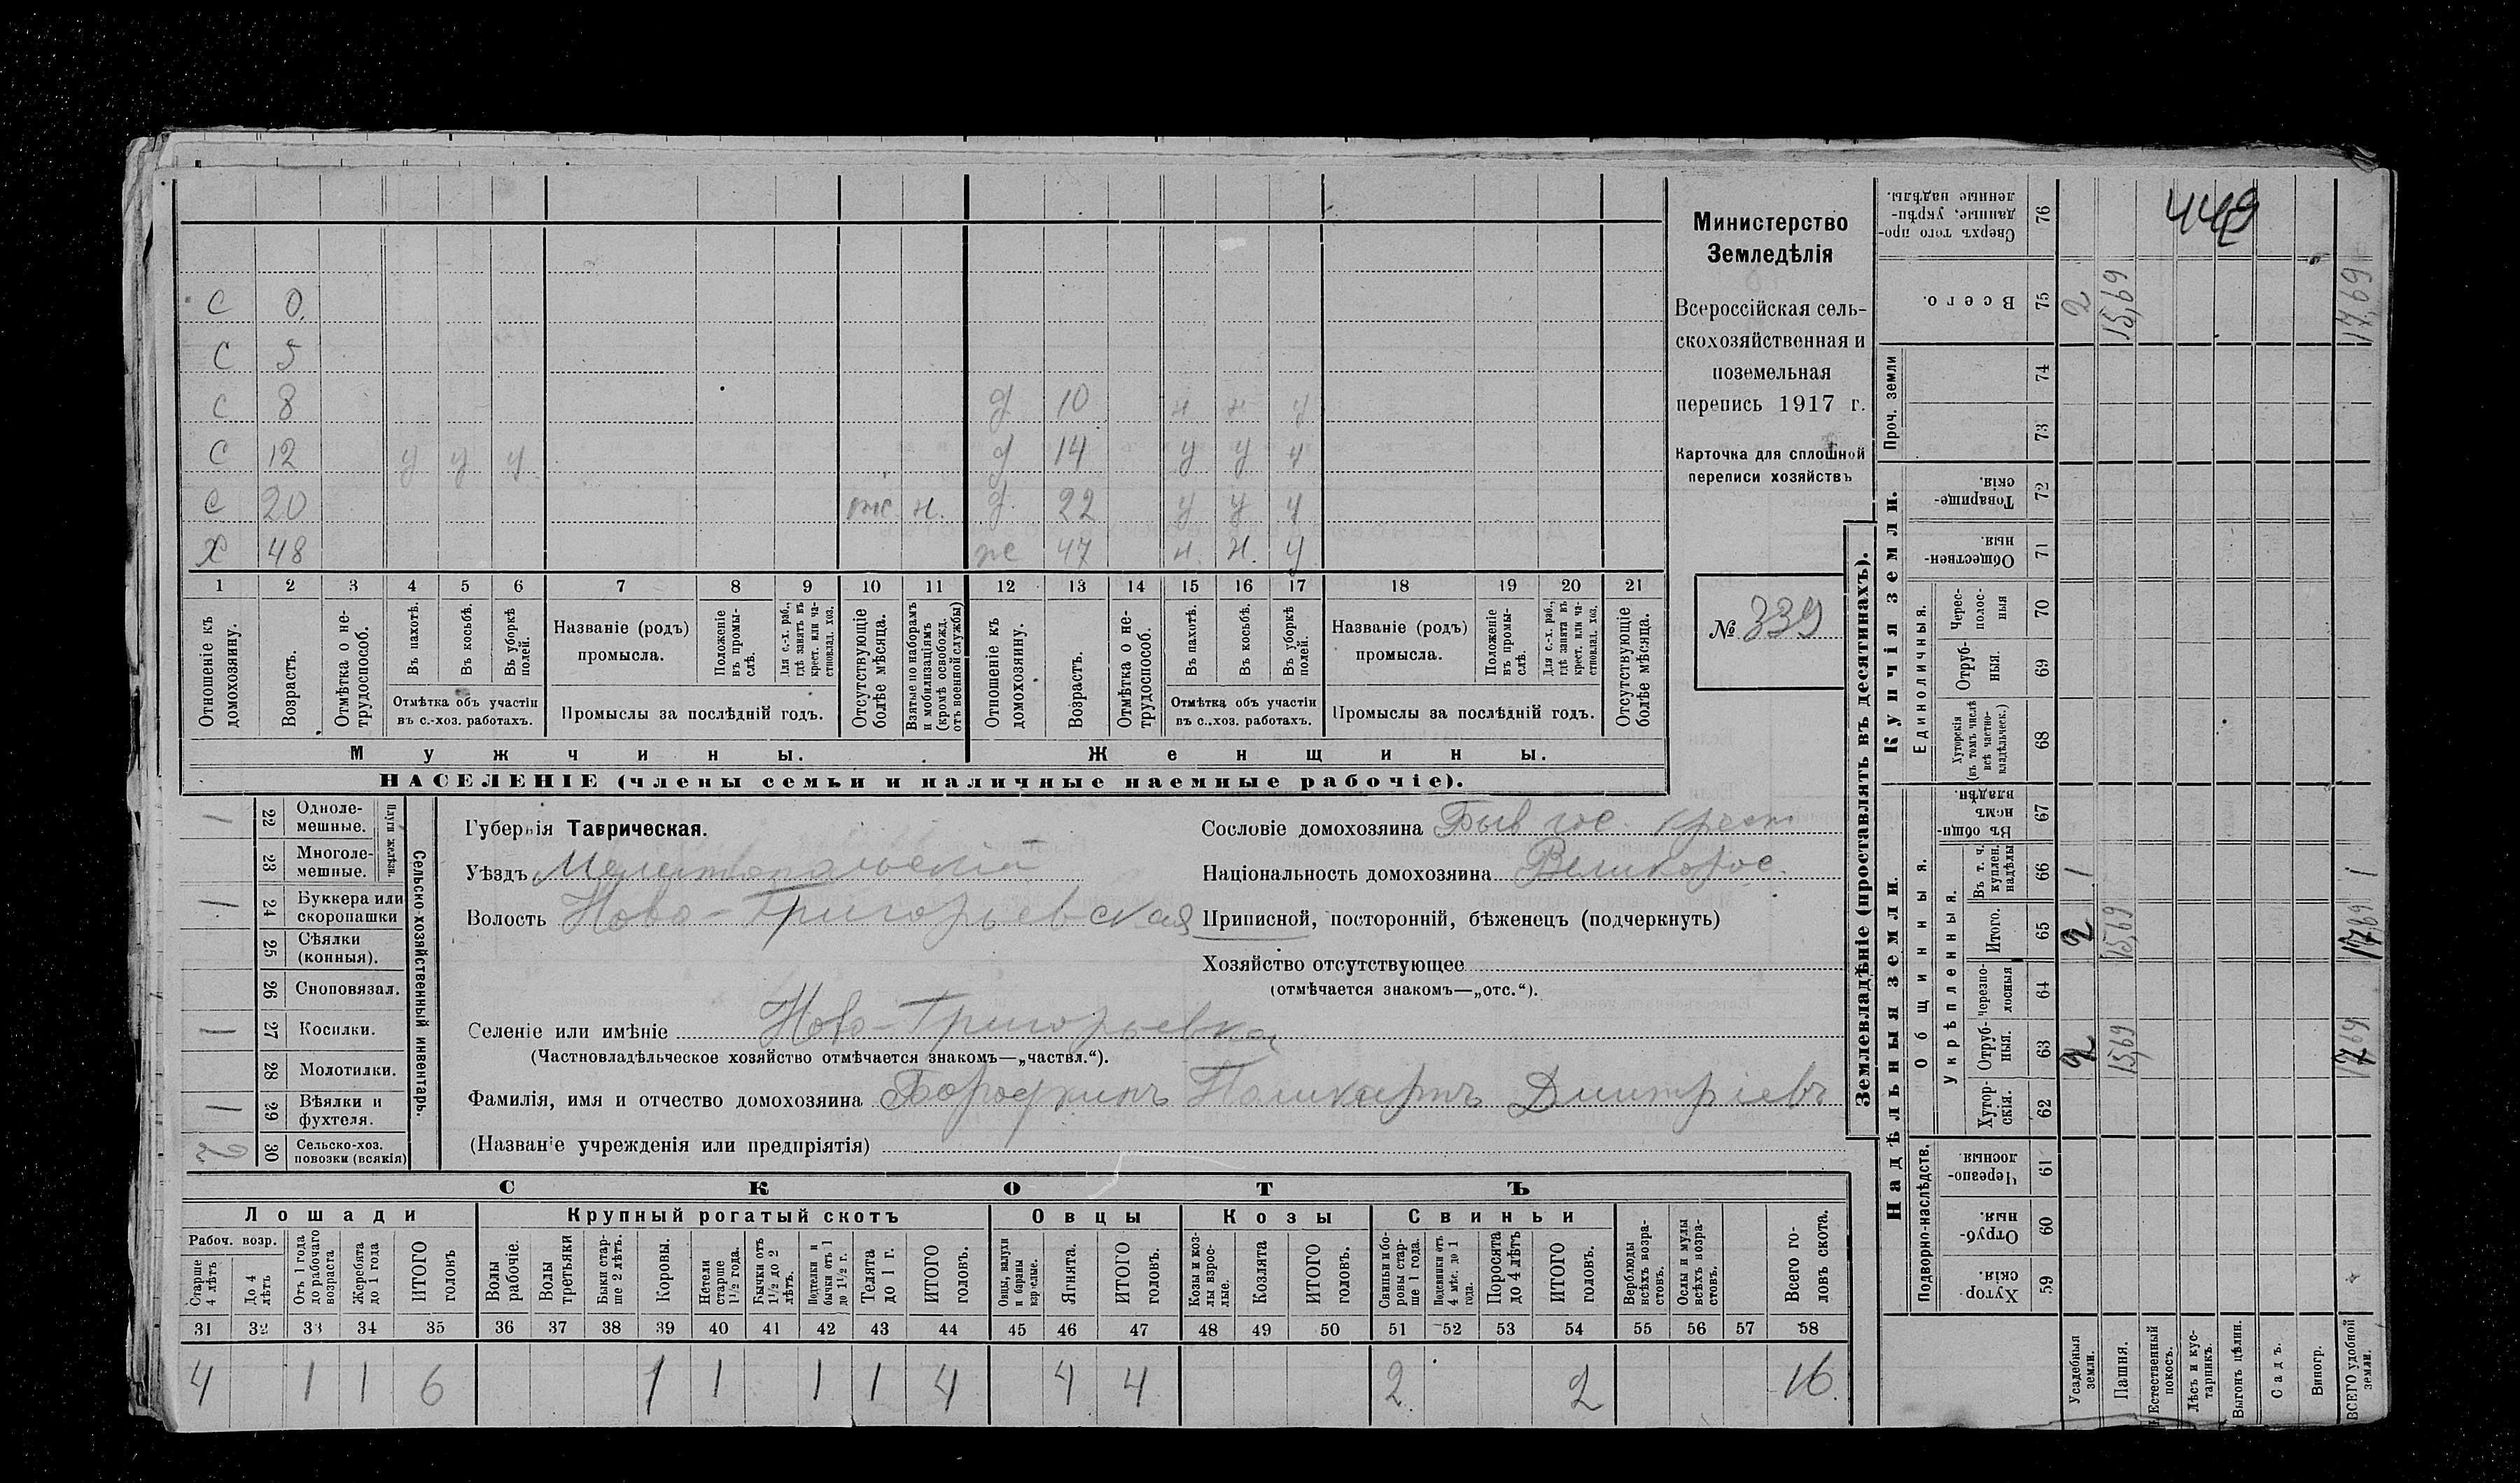 449
Министерство
Земледѣлія
Всероссійская сель-
скохозяйственная и
поземельная
перепись 1917 г.
Карточка для сплошной
переписи хозяйствъ
№ 339
С 0
С 5
С 8 д 10 н н у
С 12 у у у д 14 у у у
С 20 отс. н. д 22 у у у
Х 48 ж 47 н. н. у
1 2 3 4 5 6 7 8 9 10 11 12 13 14 15 16 17 18 19 20 21
Отношеніе къ домохозяину.
Возрастъ.
Отмѣтка о не-трудоспособ.
Въ пахотѣ.
Въ косьбѣ.
Въ уборкѣ полей.
Отмѣтка объ участіи
въ с.-хоз. работахъ.
Названіе (родъ)
промысла.
Положеніе въ промы-слѣ.
Для с.-х. раб., гдѣ занятъ въ крест. или ча-стновлад. хоз.
Промыслы за послѣдній годъ.
Отсутствующіе болѣе мѣсяца.
Взятые по наборамъ и мобилизаціямъ (кромѣ освобожд. отъ военной службы)
Отношеніе къ домохозяину.
Возрастъ.
Отмѣтка о не-трудоспособ.
Въ пахотѣ.
Въ косьбѣ.
Въ уборкѣ полей.
Отмѣтка объ участіи
въ с.-хоз. работахъ.
Названіе (родъ)
промысла.
Положеніе въ промы-слѣ.
Для с.-х. раб., гдѣ занята въ крест. или ча-стновлад. хоз.
Промыслы за послѣдній годъ.
Отсутствующіе болѣе мѣсяца.
Мужчины. Женщины.
НАСЕЛЕНІЕ (члены семьи и наличные наемные рабочіе).
Сельско-хозяйственный инвентарь.
Плуги желѣзн.
1 22 Одноле-мешные.
23 Многоле-мешные.
1 24 Буккера или скоропашки
25 Сѣялки (конныя).
26 Сноповязал.
1 27 Косилки.
28 Молотилки.
1 29 Вѣялки и фухтеля.
2 30 Сельско-хоз. повозки (всякія)
Губернія Таврическая.
Уѣздъ Мелитопольскій
Волость Ново-Григорьевская
Селеніе или имѣніе Ново-Григорьевка
(Частновладѣльческое хозяйство отмѣчается знакомъ—„частвл.“).
Фамилія, имя и отчество домохозяина Бородкинъ Дмитріевъ
(Названіе учрежденія или предпріятія)
Сословіе домохозяина Быв гос. крест
Національность домохозяина Великорос.
Приписной, посторонній, бѣженецъ (подчеркнуть)
Хозяйство отсутствующее
(отмѣчается знакомъ—„отс.“).
СКОТЪ
Лошади Крупный рогатый скотъ Овцы Козы Свиньи
Рабоч. возр.
Старше 4 лѣтъ
До 4 лѣтъ
Отъ 1 года до рабочаго возраста
Жеребята до 1 года
ИТОГО головъ
Волы рабочіе.
Волы третьяки
Быки стар-ше 2 лѣтъ.
Коровы.
Нетели старше 1½ года.
Бычки отъ 1½ до 2 лѣтъ.
Подтелки и бычки отъ 1 до 1½ г.
Телята до 1 г.
ИТОГО головъ.
Овцы, валухи и бараны взрослые.
Ягнята.
ИТОГО головъ.
Козы и коз-лы взрос-лые.
Козлята
ИТОГО головъ.
Свиньи и бо-ровы стар-ше 1 года.
Подсвинки отъ 4 мѣс. до 1 года.
Поросята до 4 лѣтъ
ИТОГО головъ.
Верблюды всѣхъ возра-стовъ.
Ослы и мулы всѣхъ возра-стовъ.
Всего го-ловъ скота.
31 32 33 34 35 36 37 38 39 40 41 42 43 44 45 46 47 48 49 50 51 52 53 54 55 56 57 58
4 1 1 6 1 1 1 1 4 4 4 2 2 16
Землевладѣніе (проставлять въ десятинахъ).
Надѣльныя земли. Купчія земли. Проч. земли
Подворно-наслѣдств.
Общинныя.
Укрѣпленныя.
Единоличныя.
59 Хутор-скія.
60 Отруб-ныя.
61 Черезпо-лосныя.
62 Хутор-скія.
63 Отруб-ныя. 2 15,69 17,69
64 Черезпо-лосныя
65 Итого. 2 15,69 17,69
66 Въ т. ч. куплен. надѣлы 1 1
67 Въ общи-номъ владѣн.
68 Хуторскія (въ томъ числѣ всѣ частно-владѣльческ.)
69 Отруб-ныя.
70 Черес-полос-ныя
71 Обществен-ныя.
72 Товарище-скія.
73
74
75 Всего. 2 15,69 17,69
76 Сверхъ того про-данные, укрѣп-ленные надѣлы.
Усадебныя земли.
Пашня.
Естественный покосъ.
Лѣсъ и кус-тарникъ.
Выгонъ цѣлин.
Садъ.
Виногр.
ВСЕГО удобной земли.